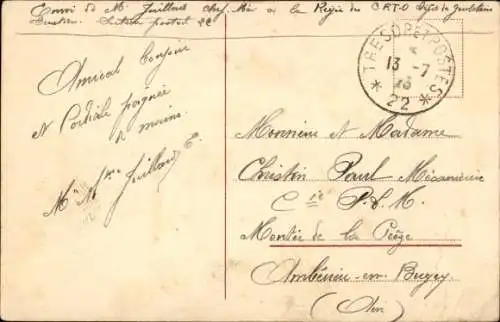 Envoi de M. Juillard chef Mén a la Régie du C.F.T.O
Secteur postal 22
TRESOR ET POSTES
13 -7
* 22 *
Amical bonjour
et Cordiale poignée
de mains.
Mr Mme Juillard E.
Monsieur et Madame
Christin Paul Mécanicien
Cie P.L.M.
Montée de la Piège
Ambérieu-en-Bugey
(Ain)